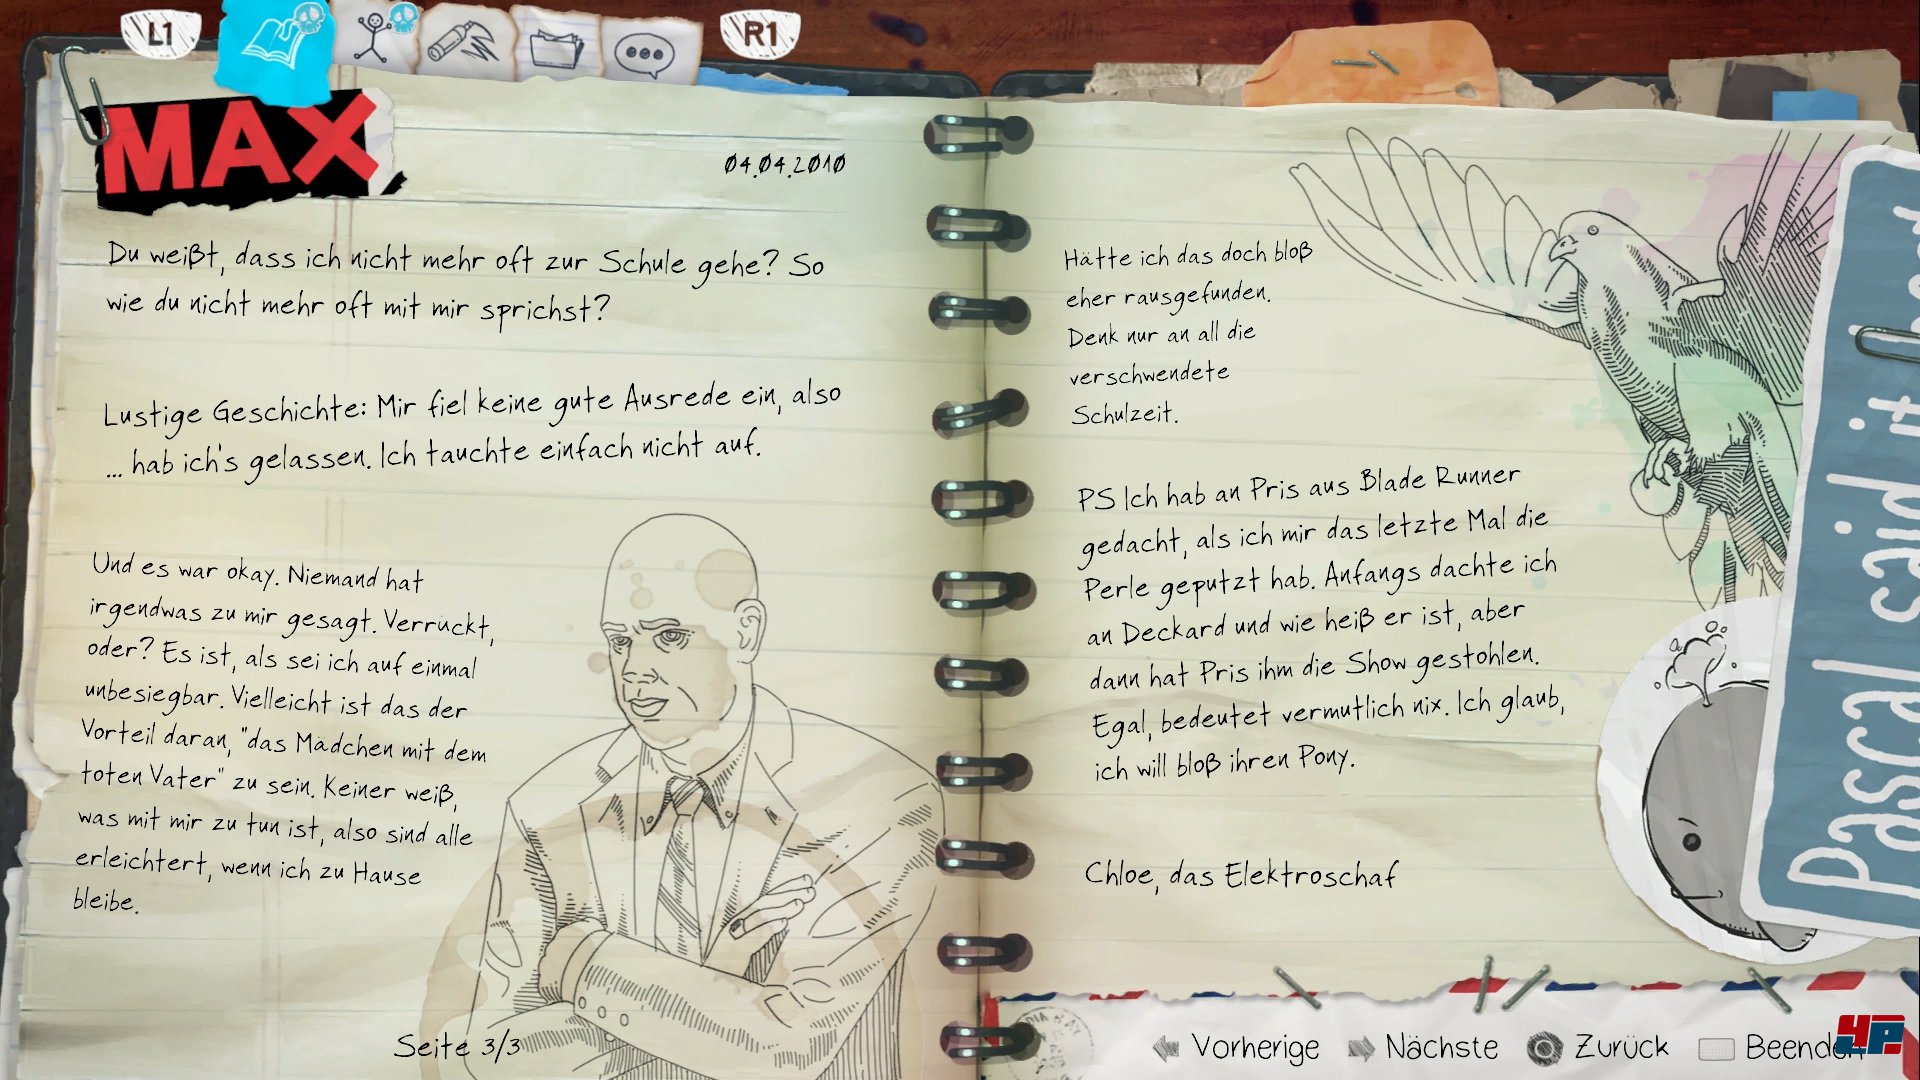 L1
R1
MAX
04.04.2010
Du weißt, dass ich nicht mehr oft zur Schule gehe? So
wie du nicht mehr oft mit mir sprichst?
Lustige Geschichte: Mir fiel keine gute Ausrede ein, also
... hab ich's gelassen. Ich tauchte einfach nicht auf.
Und es war okay. Niemand hat
irgendwas zu mir gesagt. Verrückt,
oder? Es ist, als sei ich auf einmal
unbesiegbar. Vielleicht ist das der
Vorteil daran, "das Mädchen mit dem
toten Vater" zu sein. Keiner weiß,
was mit mir zu tun ist, also sind alle
erleichtert, wenn ich zu Hause
bleibe.
Seite 3/3
Hätte ich das doch bloß
eher rausgefunden.
Denk nur an all die
verschwendete
Schulzeit.
PS Ich hab an Pris aus Blade Runner
gedacht, als ich mir das letzte Mal die
Perle geputzt hab. Anfangs dachte ich
an Deckard und wie heiß er ist, aber
dann hat Pris ihm die Show gestohlen.
Egal, bedeutet vermutlich nix. Ich glaub,
ich will bloß ihren Pony.
Chloe, das Elektroschaf
Pascal said it
Vorherige Nächste Zurück Beenden
4P